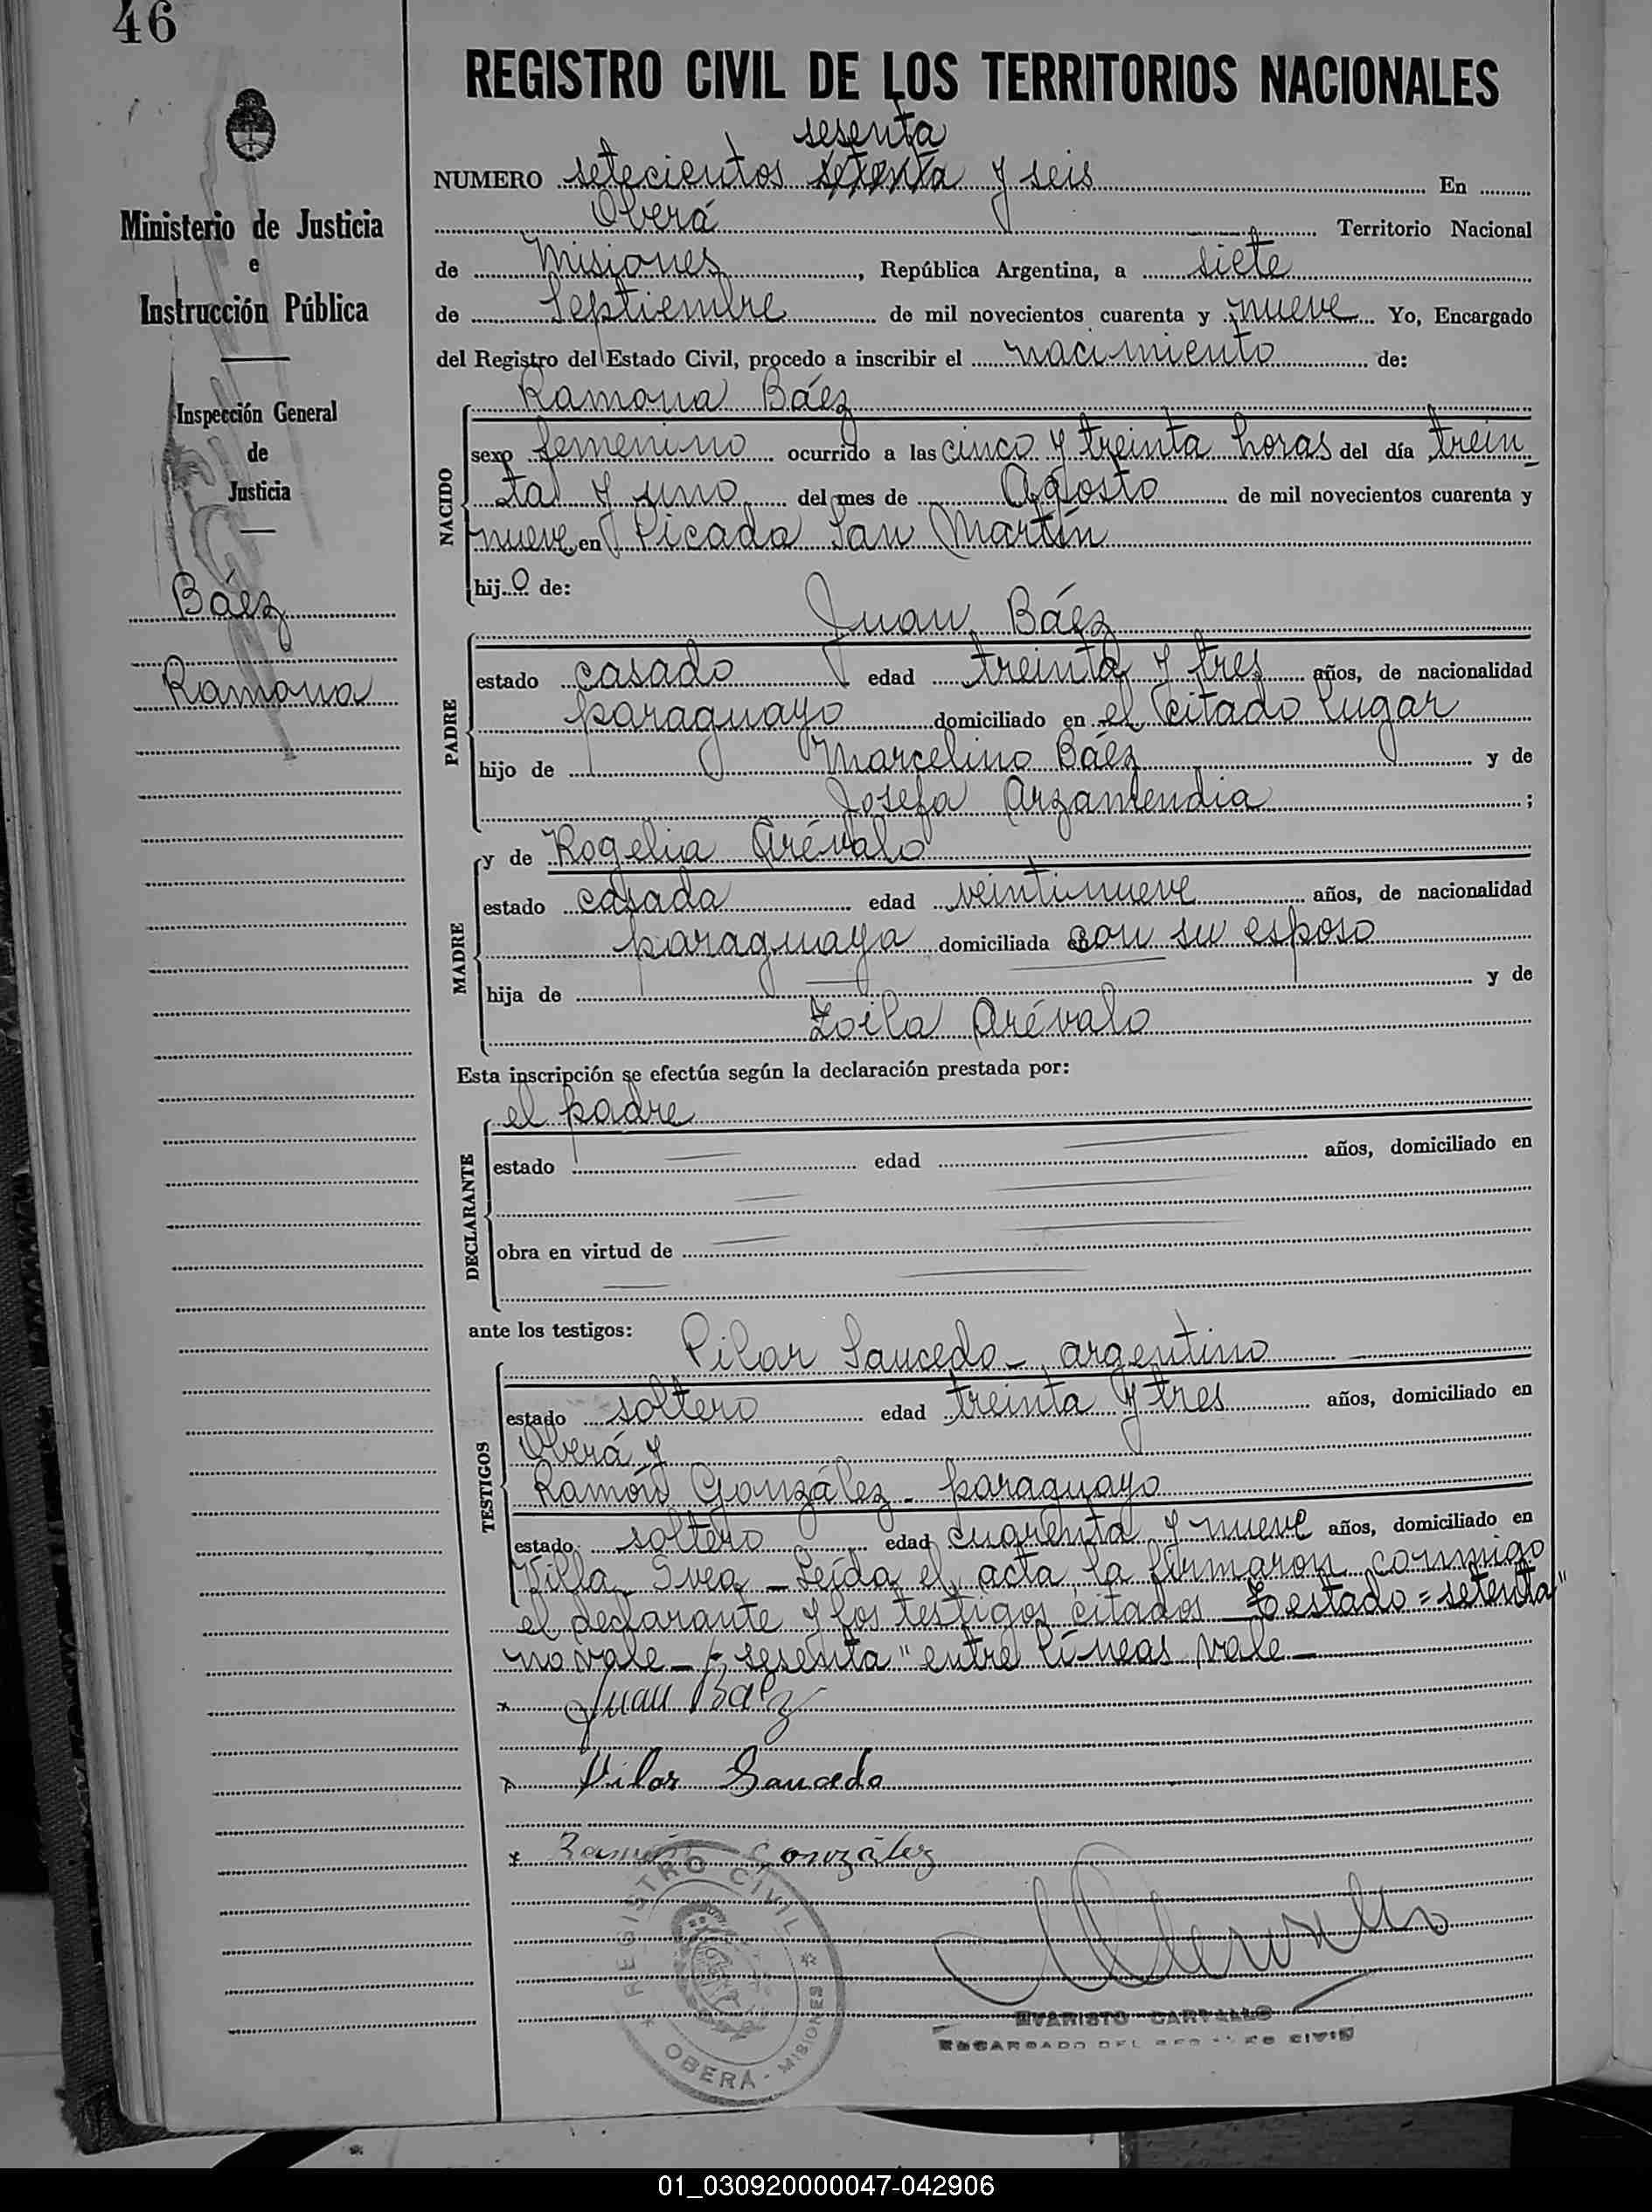 46
REGISTRO CIVIL DE LOS TERRITORIOS NACIONALES
sesenta
NUMERO setecientos setenta y seis En
Oberá Territorio Nacional
de Misiones, República Argentina, a siete
de Septiembre de mil novecientos cuarenta y nueve Yo, Encargado
del Registro del Estado Civil, procedo a inscribir el nacimiento de:
Ministerio de Justicia
e
Instrucción Pública
Inspección General
de
Justicia
Báez
Ramona
NACIDO
Ramona Báez
sexo femenino ocurrido a las cinco y treinta horas del día trein_
ta y uno del mes de Agosto de mil novecientos cuarenta y
nueve en Picada San Martín
hijo de:
PADRE
Juan Báez
estado casado edad treinta y tres años, de nacionalidad
paraguayo domiciliado en el citado lugar
hijo de Marcelino Báez y de
Josefa Arzamendia ;
MADRE
y de Rogelia Arévalo
estado casada edad veintinueve años, de nacionalidad
paraguaya domiciliada con su esposo
hija de y de
Zoila Arévalo
Esta inscripción se efectúa según la declaración prestada por:
DECLARANTE
el padre
estado edad años, domiciliado en
obra en virtud de
ante los testigos:
TESTIGOS
Pilar Saucedo - argentino
estado soltero edad treinta y tres años, domiciliado en
Oberá y
Ramón González - paraguayo
estado soltero edad cuarenta y nueve años, domiciliado en
Villa Svea - Leída el acta, la firmaron conmigo
el declarante y los testigos citados Testado = setenta"
no vale - "sesenta" entre líneas vale -
x Juan Baez
x Pilar Saucedo
x Ramón González
REGISTRO CIVIL
OBERÁ - MISIONES
EVARISTO CARVALLO
ENCARGADO DEL REGISTRO CIVIL
01_030920000047-042906